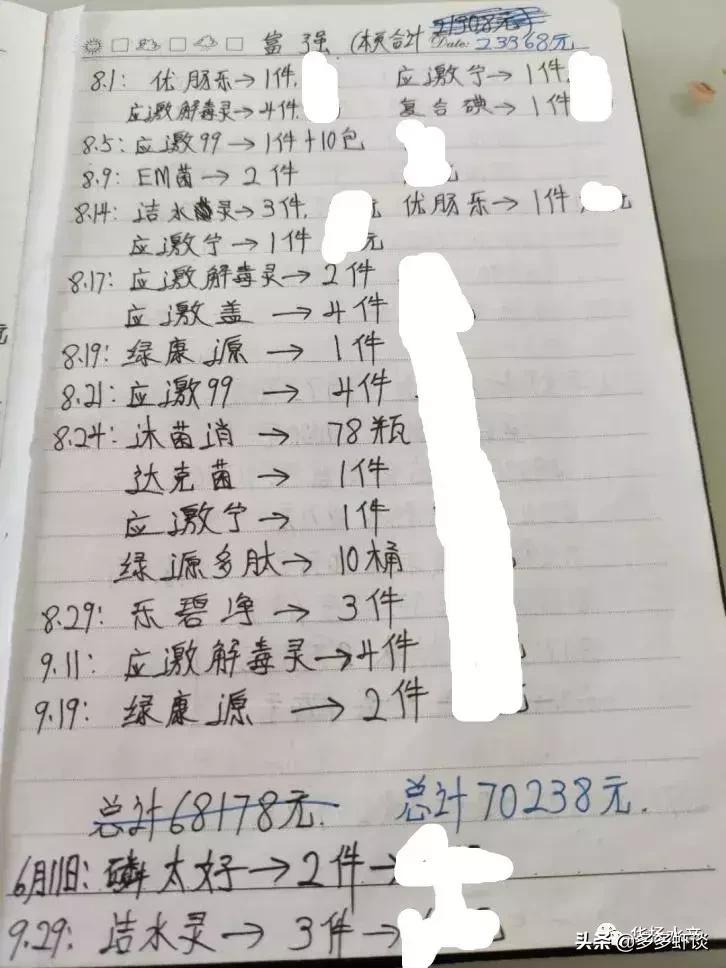 富强 (本页合计 Date: 23368元
8.1: 优肠乐→1件, 应激宁→1件,
应激解毒灵→4件, 复合碘→1件
8.5: 应激99→1件+10包
8.9: EM菌→2件
8.14: 洁水灵→3件, 元 优肠乐→1件 元
应激宁→1件 元
8.17: 应激解毒灵→2件
应激盖→4件
8.19: 绿康源→1件
8.21: 应激99→4件
8.24: 沐菌消→78瓶
达克菌→1件
应激宁→1件
绿源多肽→10桶
8.29: 乐碧净→3件
9.11: 应激解毒灵→4件
9.19: 绿康源→2件
总计68178元. 总计70238元.
6月11日: 磷太好→2件→
9.29: 洁水灵→3件→
华扬水产
头条@多多虾谈